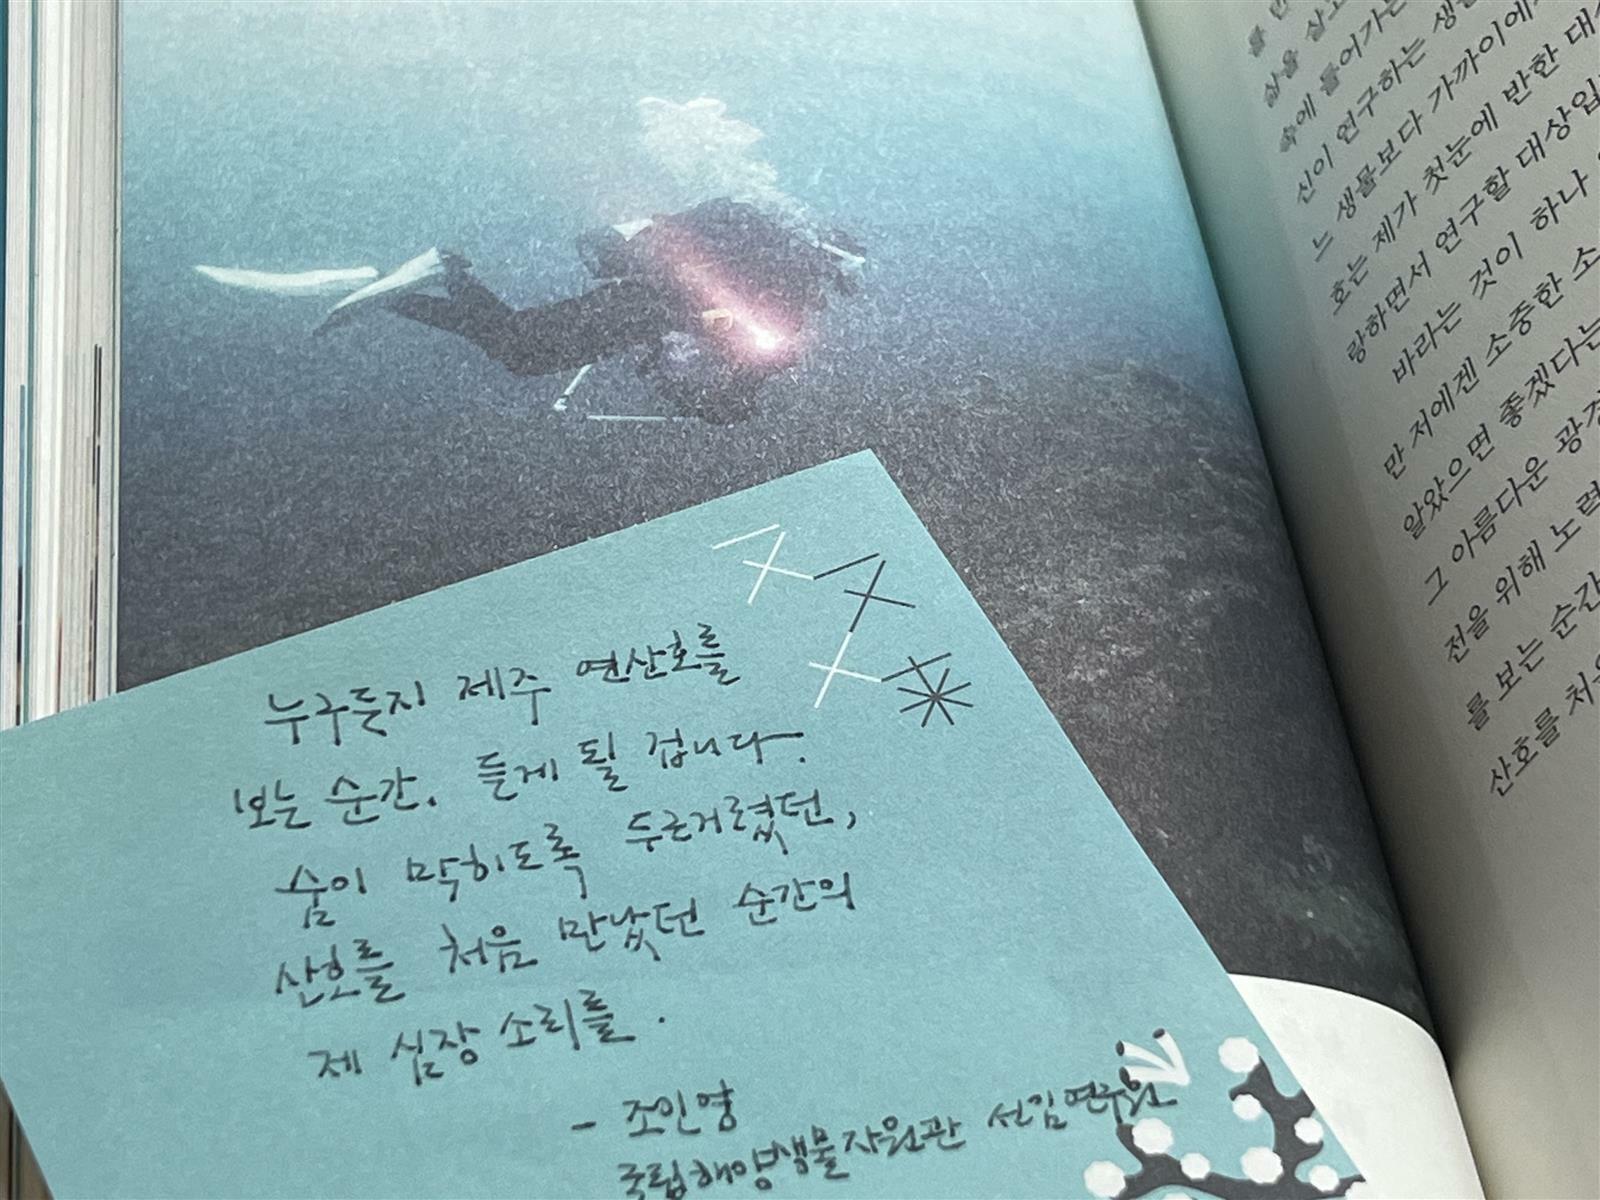 누구든지 제주 연산호를
보는 순간, 듣게 될 겁니다.
숨이 막히도록 두근거렸던,
산호를 처음 만났던 순간의
제 심장 소리를.
- 조인영
국립해양생물자원관 선임연구원
삶을 살고
속에 들어가는
신이 연구하는 생
느 생물보다 가까이에
호는 제가 첫눈에 반한 대
랑하면서 연구할 대상입
바라는 것이 하나
만 저에겐 소중한 소
알았으면 좋겠다는
그 아름다운 광경
전을 위해 노력
를 보는 순간
산호를 처음